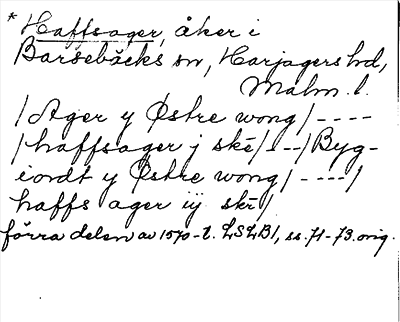 * Haffsager, åker i
Barsebäcks sn, Harjagers hd,
Malm. l.
/Ager y Østre wong/----
/haffsager j skē/--/Byg-
iordt y Østre wong/----/
haffs ager iÿ skē/
förra delen av 1570-t. LSLB1, ss. 71-73. orig.